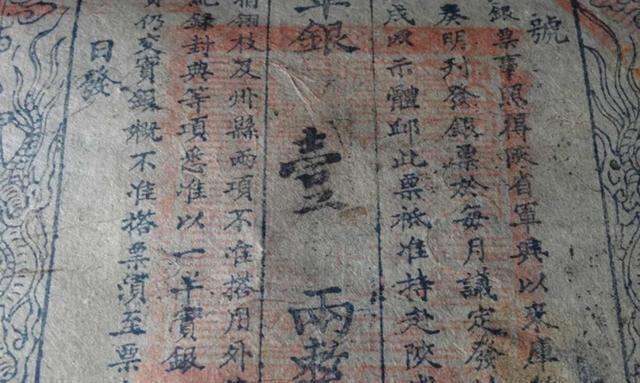 號
銀票事照得陝省軍興以來庫
奏明刋發銀票於每月議定發
成以示體邺此票祗准持赴陝
平銀壹兩整
翎枝及州縣兩項不准搭用外
紀錄封典等項悉准以一半實銀
仍交寶銀概不准搭票須至票
日發